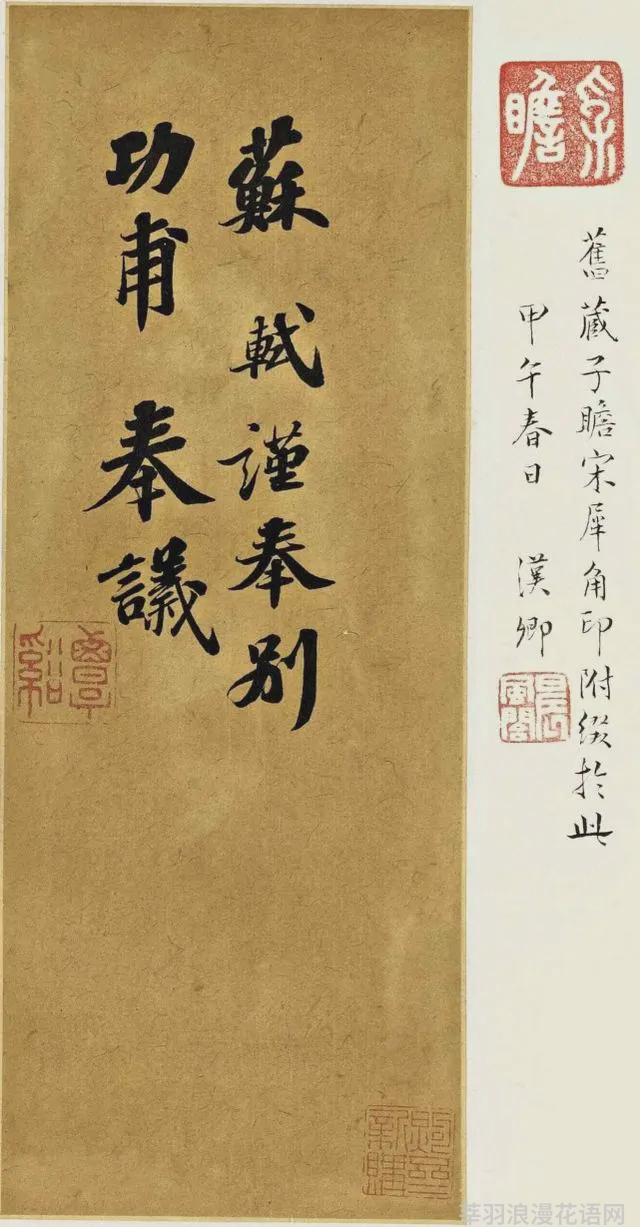 子瞻
舊藏子瞻宋犀角印附綴於此
甲午春日 漢卿
蘇軾謹奉別
功甫奉議
莘羽浪漫花语网